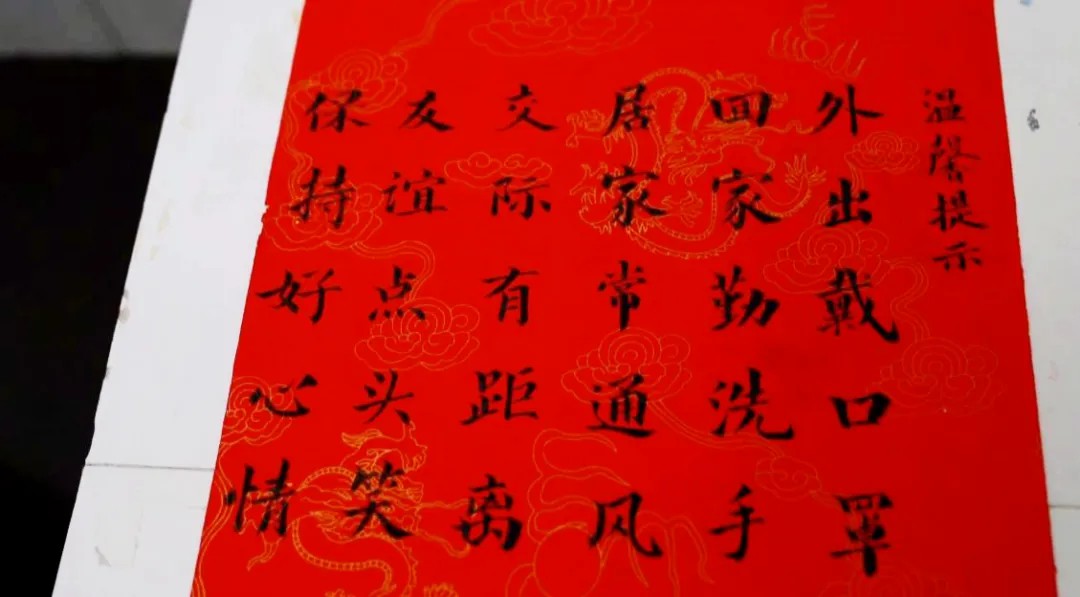 温馨提示
外出戴口罩
回家勤洗手
居家常通风
交际有距离
友谊点头笑
保持好心情